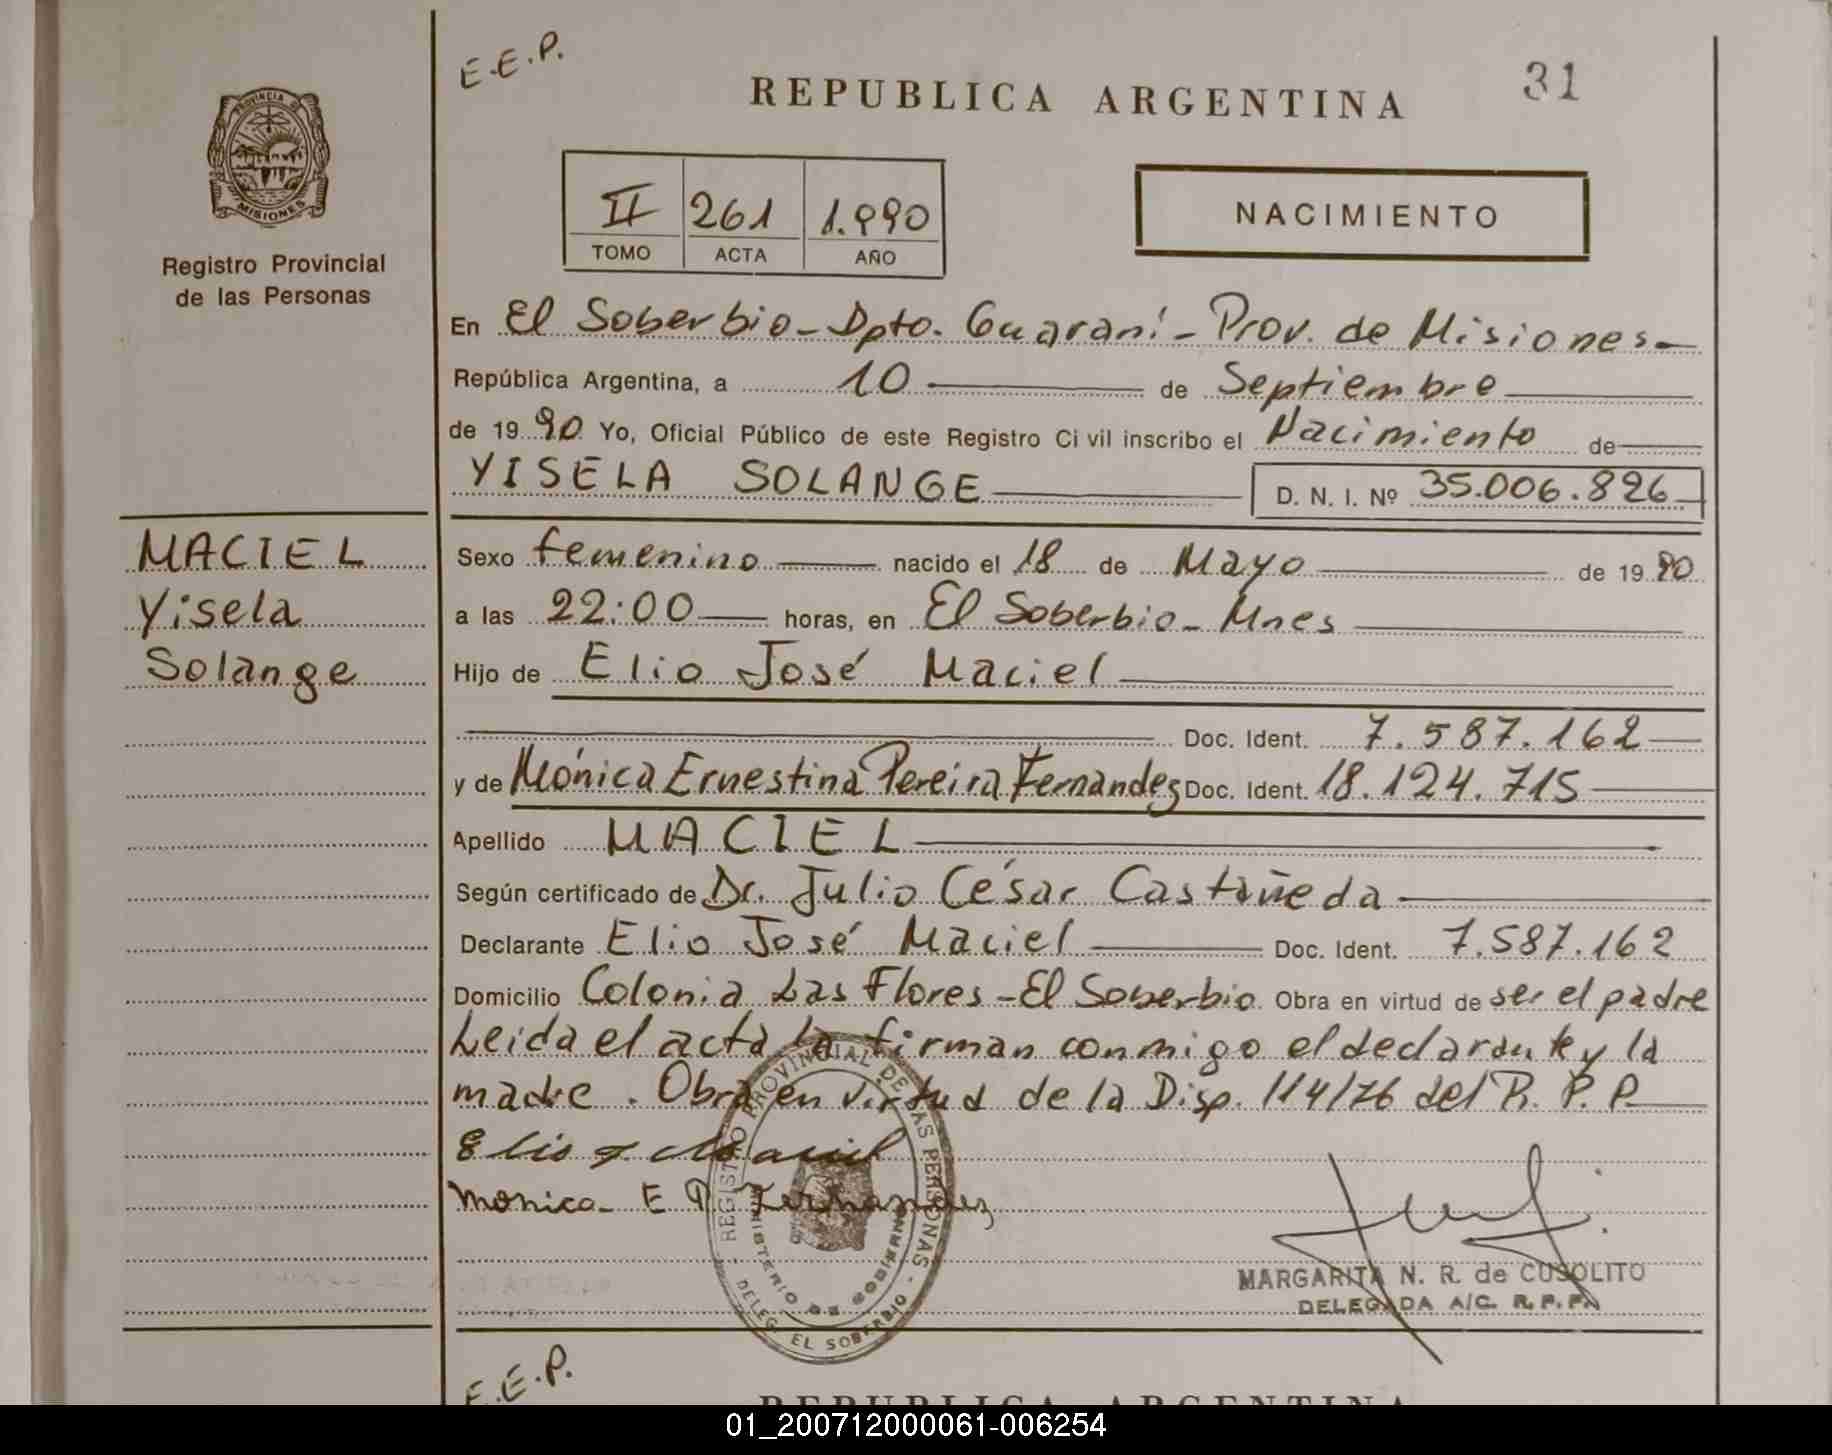 E.E.P.
REPUBLICA ARGENTINA
31
PROVINCIA DE
MISIONES
Registro Provincial
de las Personas
II 261 1.990
TOMO ACTA AÑO
NACIMIENTO
En El Soberbio - Dpto. Guaraní - Prov. de Misiones -
República Argentina, a 10 de Septiembre
de 1990 Yo, Oficial Público de este Registro Civil inscribo el Nacimiento de
YISELA SOLANGE D. N. I. Nº 35.006.826
MACIEL
Yisela
Solange
Sexo femenino nacido el 18 de Mayo de 1990
a las 22:00 horas, en El Soberbio - Mnes
Hijo de Elio José Maciel
Doc. Ident. 7.587.162
y de Mónica Ernestina Pereira Fernandez Doc. Ident. 18.124.715
Apellido MACIEL
Según certificado de Dr. Julio César Castañeda
Declarante Elio José Maciel Doc. Ident. 7.587.162
Domicilio Colonia Las Flores - El Soberbio Obra en virtud de ser el padre
Leida el acta la firman conmigo el declarante y la
madre. Obra en virtud de la Disp. 114/76 del R. P. P.
Elio J Maciel
Monica E P Fernandez
REGISTRO PROVINCIAL DE LAS PERSONAS
MINISTERIO DE GOBIERNO
DELEG. EL SOBERBIO
MARGARITA N. R. de CUSOLITO
DELEGADA A/C. R. P. P.
E.E.P.
REPUBLICA ARGENTINA
01_200712000061-006254